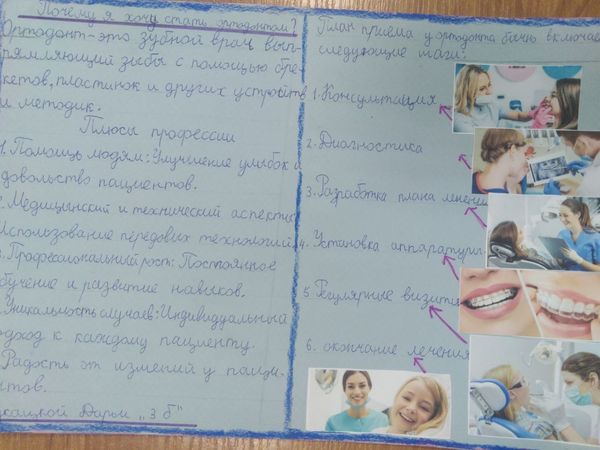 Почему я хочу стать ортодонтом?
Ортодонт-это зубной врач вып-
рямляющий зубы с помощью бре-
кетов, пластинок и других устройств
и методик.
Плюсы профессии
1. Помощь людям: Улучшение улыбок и
довольство пациентов.
Медицинский и технический аспекты
Использование передовых технологий
3. Профессиональный рост: Постоянное
обучение и развитие навыков.
Уникальность случаев: Индивидуальный
подход к каждому пациенту.
Радость от изменений у паци-
нтов.
Дарьи „3 б"
План приёма у ортодонта обычно включает
следующие шаги:
1. Консультация
2. Диагностика
3. Разработка плана лечения
4. Установка аппаратуры
5. Регулярные визиты
6. окончание лечения